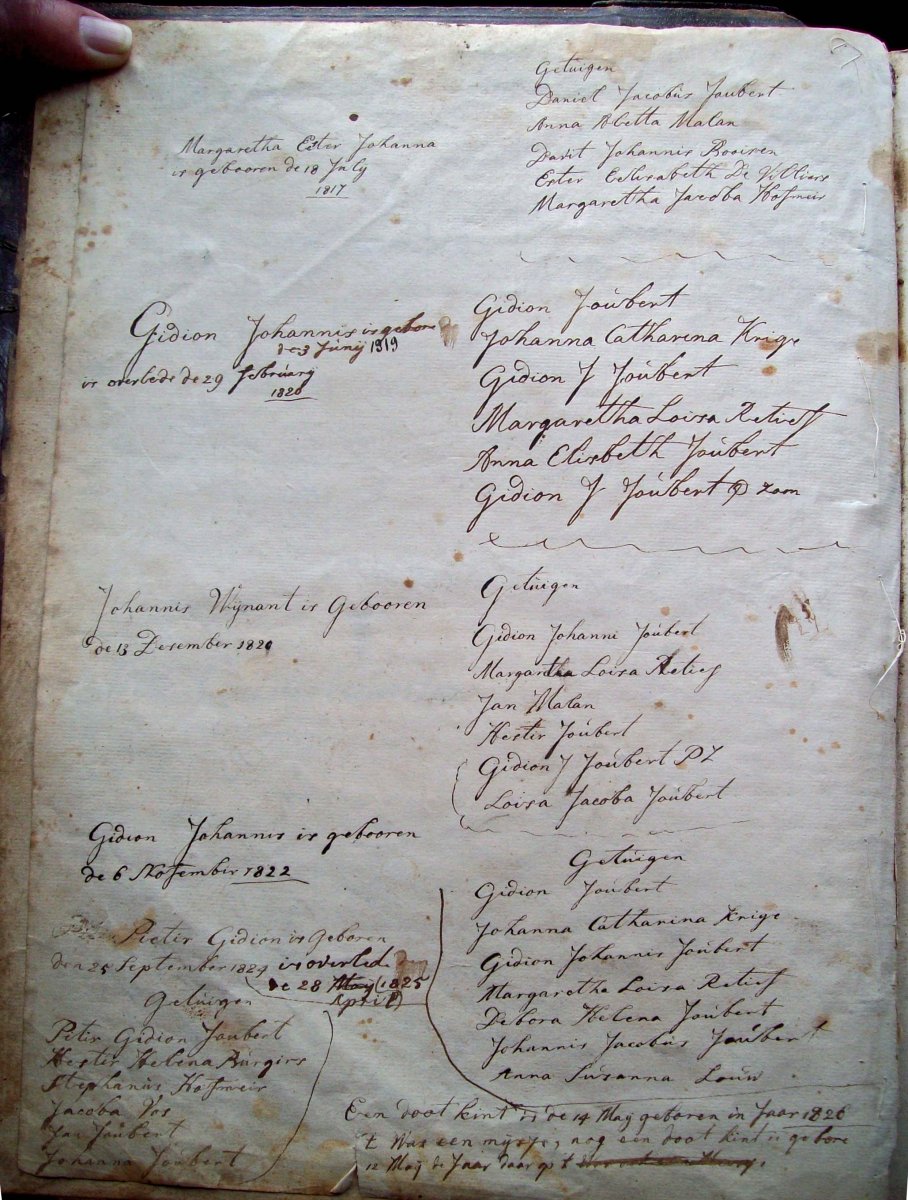 Margaretha Ester Johanna
is gebooren de 18 July
1817
Getuigen
Daniel Jacobüs Joubert
Anna Aletta Malan
Davit Johannis Rooisen
Ester Eelisabeth De Villiers
Margaretha Jacoba Hofmeir
Gidion Johannis is gebore
de 3 Júnij 1819
is overlede de 29 februarij
1820
Gidion Joúbert
Johanna Catharina Krige
Gidion J Joúbert
Margaretha Loisa Retief
Anna Elisbeth Joúbert
Gidion J Joúbert zoon
Johannis Wÿnant is Gebooren
de 13 Desember 1820
Getüigen
Gidion Johanni Joúbert
Margaretha Loisa Retief
Jan Malan
Hestir Joúbert
Gidion J Joúbert PZ
Loisa Jacoba Joúbert
Gidion Johannis is gebooren
de 6 November 1822
Getüigen
Gidion Joubert
Johanna Catharina Krige
Gidion Johannis Joúbert
Margaretha Loisa Retief
Debora Helena Joúbert
Johannis Jacobüs Joúbert
Anna Súsanna Louw
Pieter Gidion is Geboren
den 25 September 1824 is overled
de 28 Maÿ 1825
April
Getuigen
Peter Gidion Joubert
Hestir Helena Búrgirs
Stephanús Hofmeir
Jacoba Vos
Jan Joúbert
Johanna Joúbert
Een doot kint is de 14 Maÿ geboren in Jaar 1826
t Was een mysje, nog een doot kint is gebore
12 Maÿ de Jaar daar op t